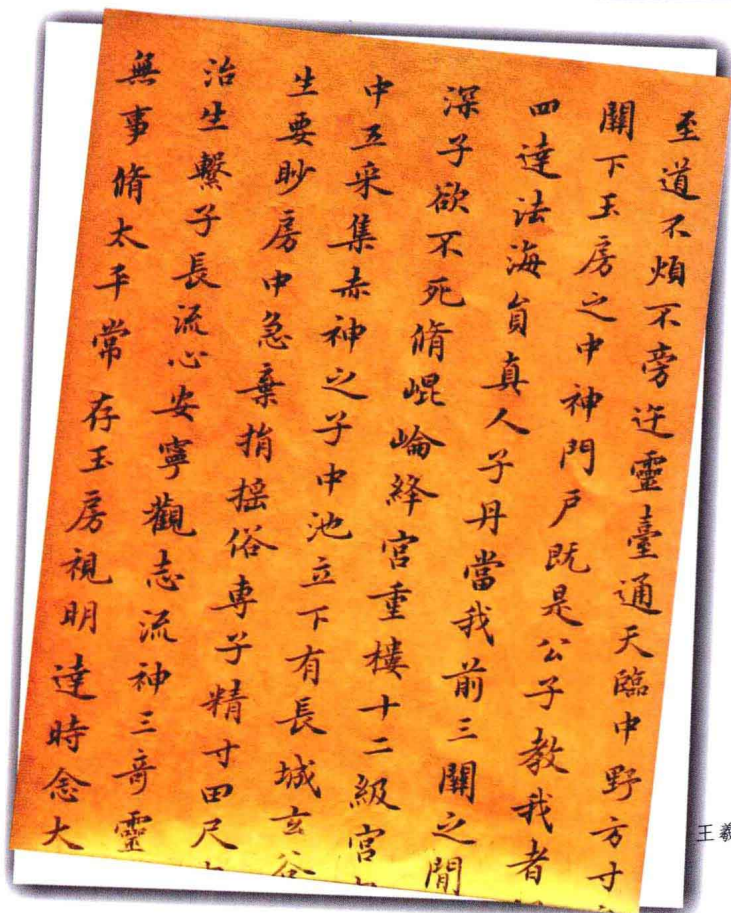 至道不煩不旁迕靈臺通天臨中野方寸
關下玉房之中神門户既是公子教我者
四達法海員真人子丹當我前三關之間
深子欲不死脩崐崘絳宮重樓十二級宮
中五采集赤神之子中池立下有長城玄谷
生要眇房中急棄捐摇俗專子精寸田尺
治生繫子長流心安寧觀志流神三奇靈
無事脩太平常存玉房視明達時念大
王羲